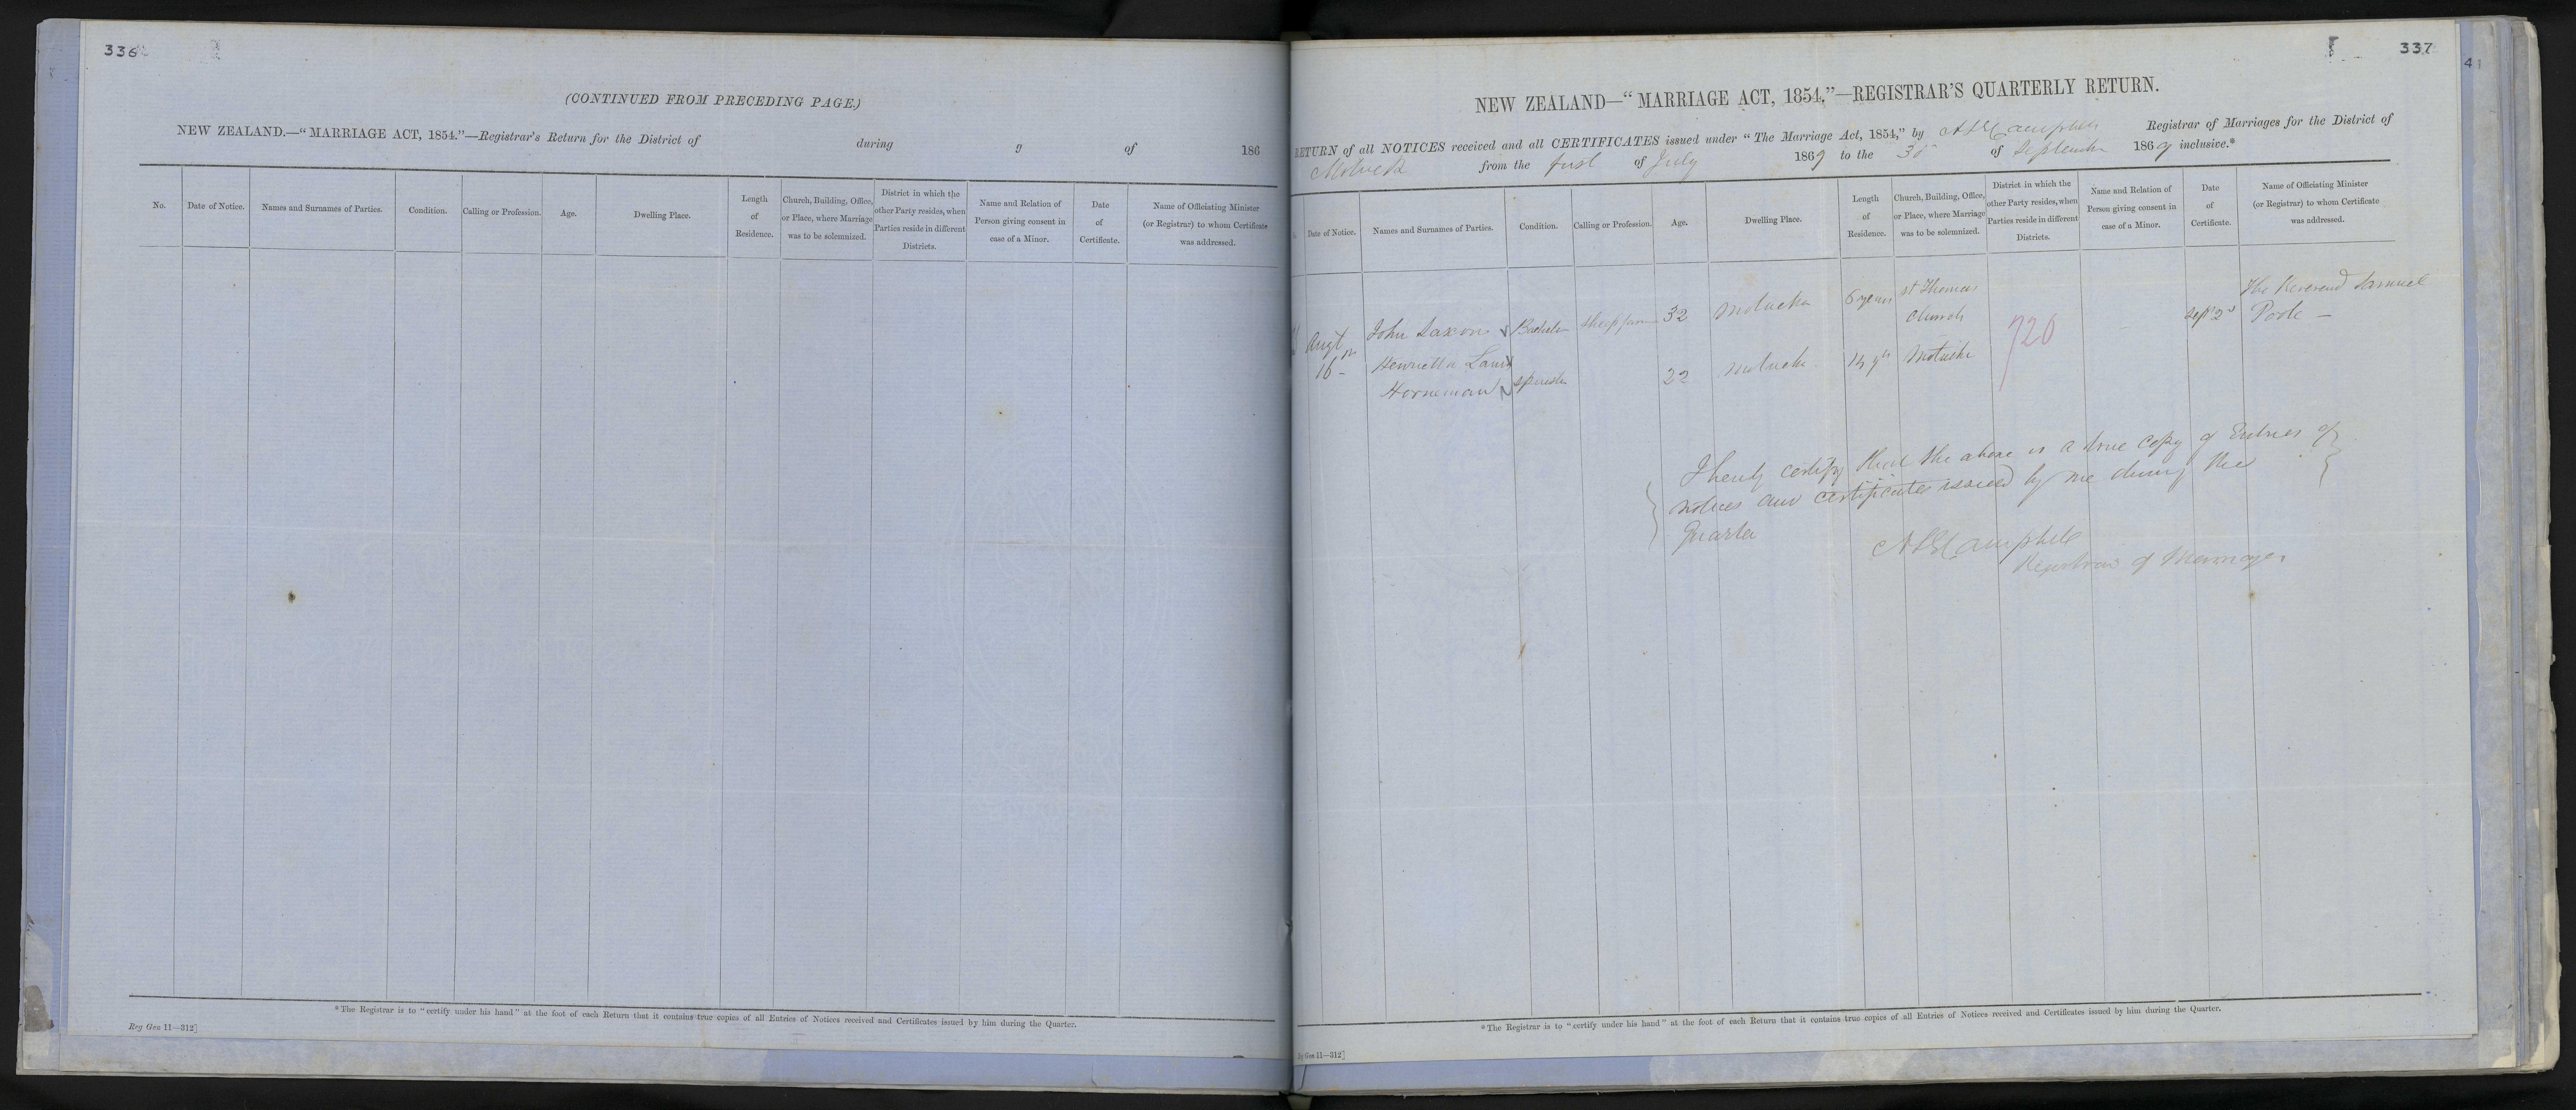 336
(CONTINUED FROM PRECEDING PAGE.)
NEW ZEALAND.—"MARRIAGE ACT, 1854."—Registrar's Return for the District of during 9 of 186
No.
Date of Notice.
Names and Surnames of Parties.
Condition.
Calling or Profession.
Age.
Dwelling Place.
Length
of
Residence.
Church, Building, Office,
or Place, where Marriage
was to be solemnized.
District in which the
other Party resides, when
Parties reside in different
Districts.
Name and Relation of
Person giving consent in
case of a Minor.
Date
of
Certificate.
Name of Officiating Minister
(or Registrar) to whom Certificate
was addressed.
*The Registrar is to "certify under his hand" at the foot of each Return that it contains true copies of all Entries of Notices received and Certificates issued by him during the Quarter.
Reg Gen 11—312]
337
41
NEW ZEALAND—"MARRIAGE ACT, 1854."—REGISTRAR'S QUARTERLY RETURN.
RETURN of all NOTICES received and all CERTIFICATES issued under "The Marriage Act, 1854," by Campbell Registrar of Marriages for the District of
Motueka from the first of July 1869 to the 30 of September 1869 inclusive.*
Date of Notice.
Names and Surnames of Parties.
Condition.
Calling or Profession.
Age.
Dwelling Place.
Length
of
Residence.
Church, Building, Office,
or Place, where Marriage
was to be solemnized.
District in which the
other Party resides, when
Parties reside in different
Districts.
Name and Relation of
Person giving consent in
case of a Minor.
Date
of
Certificate.
Name of Officiating Minister
(or Registrar) to whom Certificate
was addressed.
Augt
16
John Saxon Bachelor 32 Motueka 6 years St Thomas
Church
Sept 2d
The Reverend Samuel
Poole —
Henrietta
Horneman Spinster 22 Motueka Motueka
720
I hereby certify that the above is a true copy of Entries of
notices and certificates issued by me during the
Quarter
Campbell
Registrar of Marriages
*The Registrar is to "certify under his hand" at the foot of each Return that it contains true copies of all Entries of Notices received and Certificates issued by him during the Quarter.
Gen 11—312]